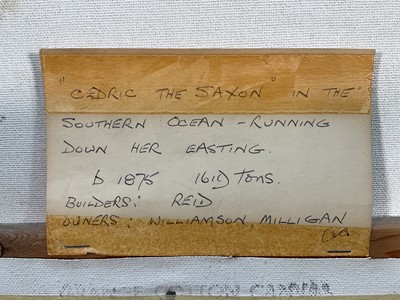 "CEDRIC THE SAXON" IN THE
SOUTHERN OCEAN - RUNNING
DOWN HER EASTING.
b 1875 1619 Tons.
BUILDERS: REID
OWNERS: WILLIAMSON, MILLIGAN
COTTON CANVAS